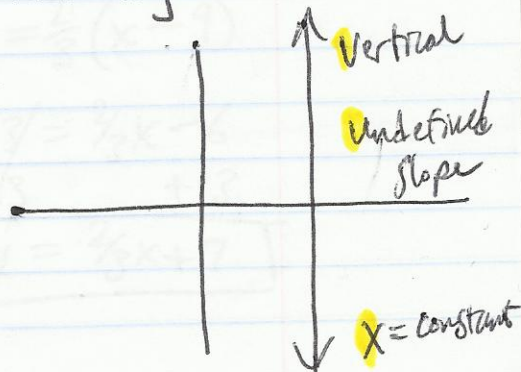 Vertical
Undefined
Slope
X = constant